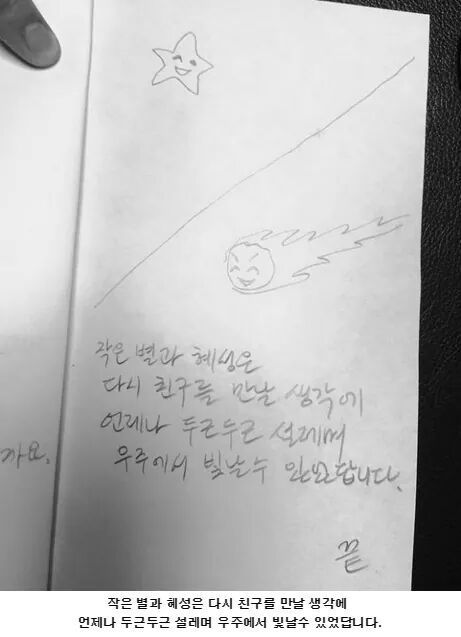 작은 별과 혜성은
다시 친구를 만날 생각에
언제나 두근두근 설레며
까요.
우주에서 빛날수 있었답니다.
끝
작은 별과 혜성은 다시 친구를 만날 생각에
언제나 두근두근 설레며 우주에서 빛날수 있었답니다.